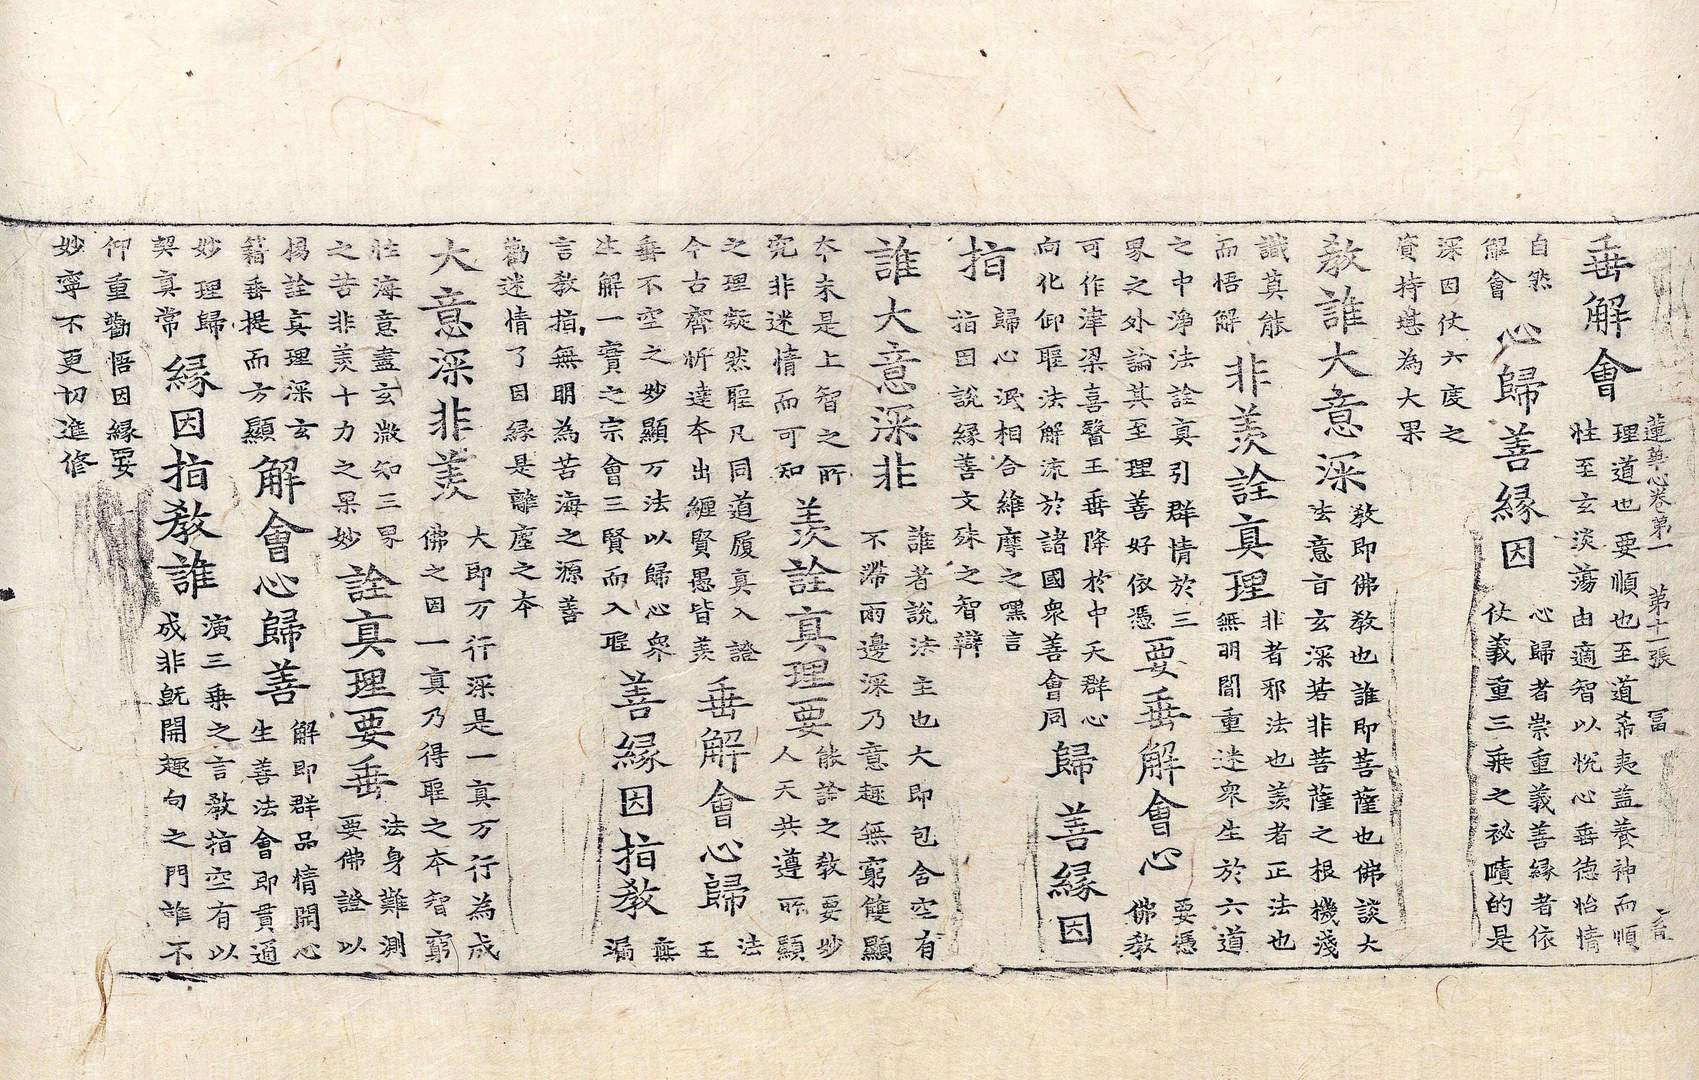 蓮華心卷第一　第十一張　冨
垂解會 理道也要順也至道希夷益養神而順
性至玄淡蕩由適智以恱心垂德怡情
自然
解會 心歸善縁因 心歸者崇重義善縁者依
仗義重三乘之祕賾的是
深因仗六度之
資持堪為大果
教誰大意深 教即佛教也誰即菩薩也佛談大
法意旨玄深若非菩薩之根機淺
識莫能
而悟解 非羡詮真理 非者邪法也羡者正法也
無明闇重迷衆生於六道
之中淨法詮真引群情於三
界之外論其至理善好依憑 要垂解會心 要憑
佛教
可作津梁喜醫王垂降於中天群心
向化仰聖法解流於諸國衆善會同 歸善縁因
指 歸心泯相合維摩之嘿言
指因説縁善文殊之智辯
誰大意深非 誰者説法主也大即包含空有
不滯兩邊深乃意趣無窮雙顯
本末是上智之所
究非迷情而可知 羡詮真理要 能詮之教要妙
人天共遵所顯
之理凝然聖凡同道履真入證
今古齊忻達本出纏賢愚皆羡 垂解會心歸 法
王
垂不空之妙顯万法以歸心衆
生解一實之宗會三賢而入聖 善縁因指教 無
漏
言教指無明為苦海之源善
勸迷情了因縁是離塵之本
大意深非羡 大即万行深是一真万行為成
佛之因一真乃得聖之本智窮
性海意盡玄微知三界
之苦非羡十力之果妙 詮真理要垂 法身難測
要佛證以
楊詮真理深玄
籍垂提而方顯 解會心歸善 解即群品情開心
生善法會即貫通
妙理歸
契真常 縁因指教誰 演三乘之言教指空有以
成非旣開趣向之門誰不
仰重勸悟因縁要
妙寧不更切進修